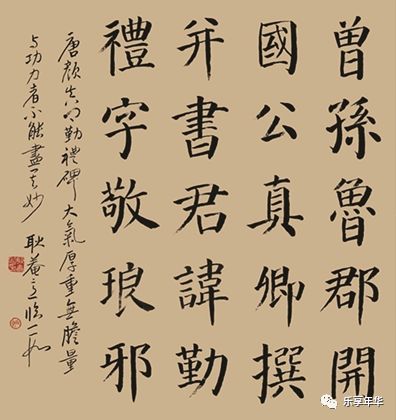 曾孫魯郡開
國公真卿撰
并書君諱勤
禮字敬琅邪
唐顏真卿勤禮碑大氣厚重無膽量
与功力者不能盡其妙 耿菴
乐享年华